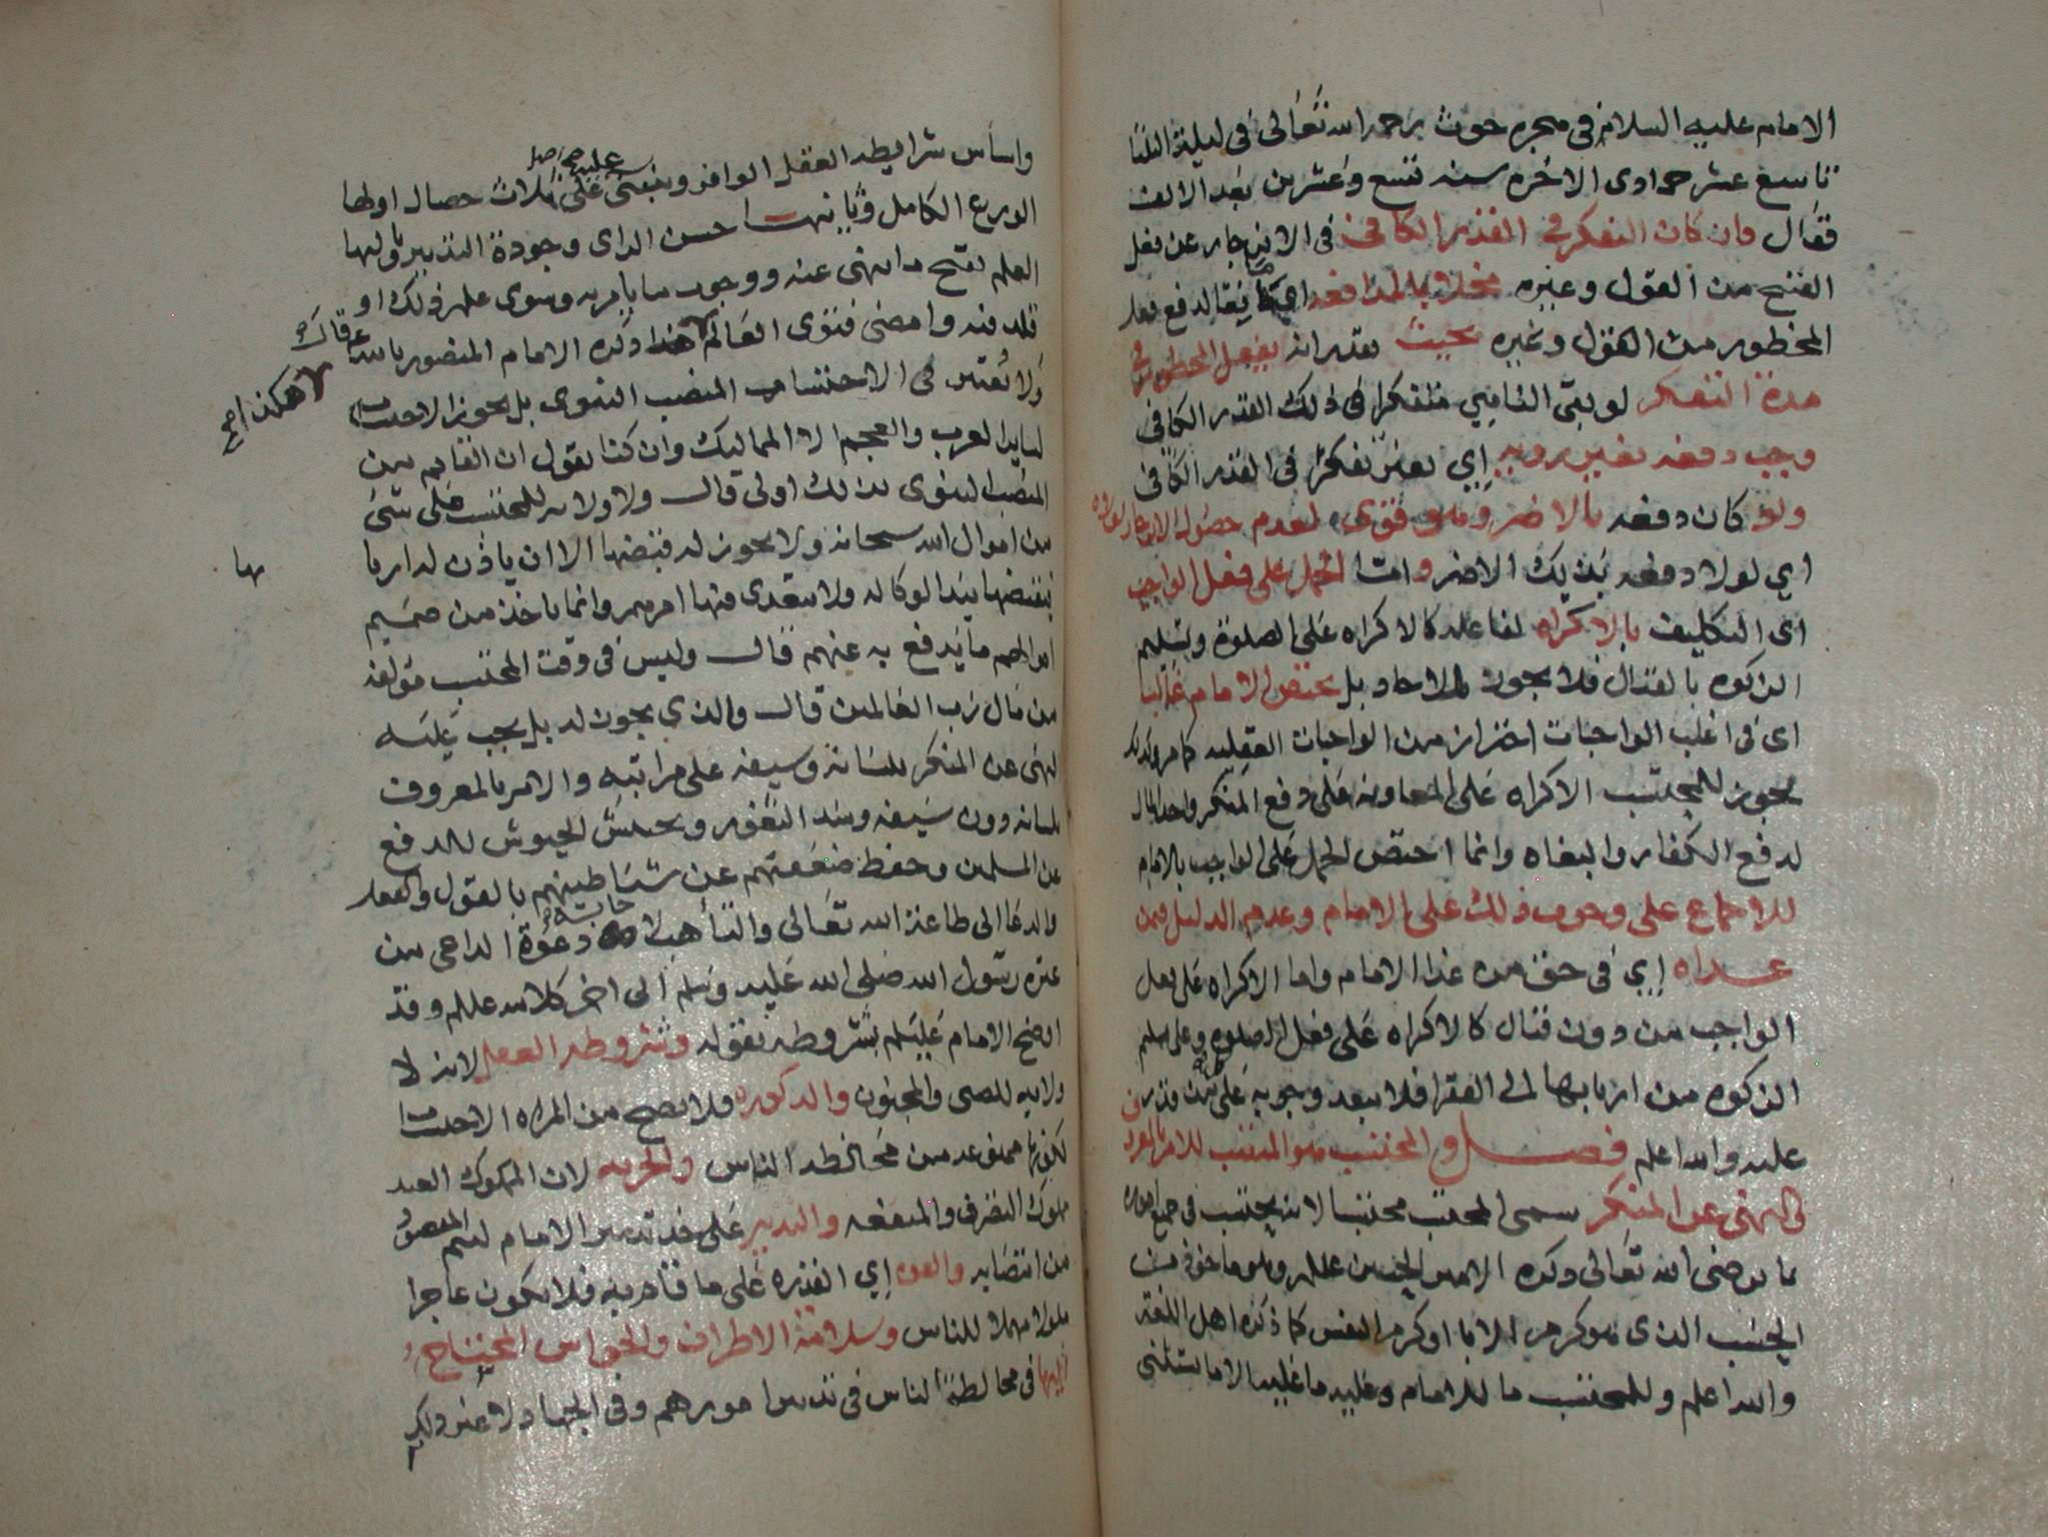 الامام عليه السلام في هجره حوث رحمه الله تعالى في ليلة الثلثا
تاسع عشر جمادى الاخره سنه تسع وعشرين بعد الالف
فقال وان كان التفكر في القدر الكافي في الانزجار عن فعل
القبيح من القول وغيره مخلا بالمدافعه اي يقال دفع فعل
المحظور من القول وغيره بحيث يقدر انه يفعل المحظور في
مدة التفكر لو بقي الناهي متفكرا في ذلك القدر الكافي
وجب دفعه بغير رويه اي بغير تفكر في القدر الكافي
ولو كان دفعه بالاضر وهو قوي لعدم حصول
اي لولا دفعه بذلك الاضر واما الحمل على فعل الواجب
اي التكليف بالاكراه لفاعله كالاكراه على الصلوة وتسليم
الزكوه بالقتال فلا يجوز للاحاد بل يختص الامام غالبا
اي في اغلب الواجبات احتراز من الواجبات العقليه كما مر وكذلك
يجوز للمحتسب الاكراه على المعاونه على دفع المنكر واخذ المال
لدفع الكفار والبغاه وانما اختص الحمل على الواجب بالامام
للاجماع على وجوب ذلك على الامام وعدم الدليل فيمن
عداه اي في حق من عدا الامام واما الاكراه على فعل
الواجب من دون قتال كالاكراه على فعل الصلوه وعلى تسليم
الزكوه من اربابها الى الفقرا فلا يبعد وجوبه على من قدر
عليه والله اعلم فصل والمحتسب هو المنتصب للامر بالمعروف
والنهي عن المنكر سمي المحتسب محتسبا لانه يحتسب في جميع اموره
ما يرضي الله تعالى ذكره الامير الحسين عليلم وهو ماخوذ من
الحسب الذي هو كرم الابا او كرم النفس كما ذكره اهل اللغه
والله اعلم وللمحتسب ما للامام وعليه ما عليه الا ما يستثنى
واساس شرايطه العقل الوافر وينبني على ثلاث خصال اولها
عليه صح اصل
الورع الكامل وثانيتها حسن الراي وجودة التدبير وثالثها
العلم بقبح ما ينهى عنه ووجوب ما يامر به وسوى علم ذلك او
قلد فيه وامضى فتوى العالم هذا ذكره الامام المنصور بالله عم قال
هكذا صح
ولا يعتبر في الاحتساب المنصب النبوي بل يجوز الاحتساب
لساير العرب والعجم الا المماليك وان كنا نقول ان القايم من
المنصب النبوي بذلك اولى قال ولا ولايه للمحتسب على شي
من اموال الله سبحانه ولا يجوز له قبضها الا ان ياذن له اربا
بها
فيقبضها بيد الوكاله ولا يتعدى فيها امرهم وانما ياخذ من صميم
اموالهم ما يدفع به عنهم قال وليس في وقت المحتسب مؤلفه
من مال رب العالمين قال والذي يجوز له بل يجب عليه
النهي عن المنكر بلسانه وسيفه على مراتبه والامر بالمعروف
بلسانه دون سيفه وسد الثغور وتجييش الجيوش للدفع
عن المسلمين وحفظ ضعفتهم عن شياطينهم بالقول والفعل
والدعا الى طاعة الله تعالى والتاهب لاجابة دعوة الداعي من
عتره رسول الله صلى الله عليه وسلم الى اخر كلامه عليلم وقد
اوضح الامام عليلم شروطه بقوله وشروطه العقل لانه لا
ولايه للصبي والمجنون والذكوره فلا يصح من المراه الاحتساب
لكونها ممنوعه من مخالطه الناس والحريه لان المملوك العبد
مملوك التصرف والمنفعه والتدبير على حد تدبير الامام ليتم المقصود
من انتصابه والقوه اي القدره على ما قام به فلا يكون عاجزا
ملولا مهملا للناس وسلامة الاطراف والحواس المحتاج
اليها في مخالطة الناس في تدبير امورهم وفي الجهاد